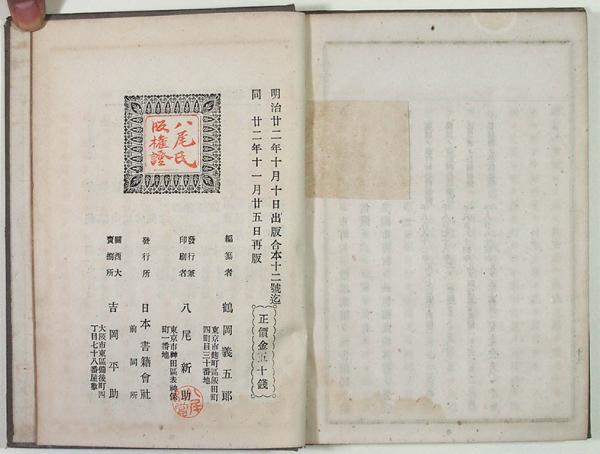 明治廿二年十月十日出版合本十二號迄
同 廿二年十一月廿五日再版
正價金五十錢
編纂者 鶴岡義五郎
東京市麹町區飯田町
四町目三十番地
發行兼
印刷者 八尾新助
東京市神田區表神保
町一番地
發行所 日本書籍會社
前同所
關西大
賣捌所 吉岡平助
大阪市東區備後町四
丁目七十八番屋敷
八尾氏
版權證